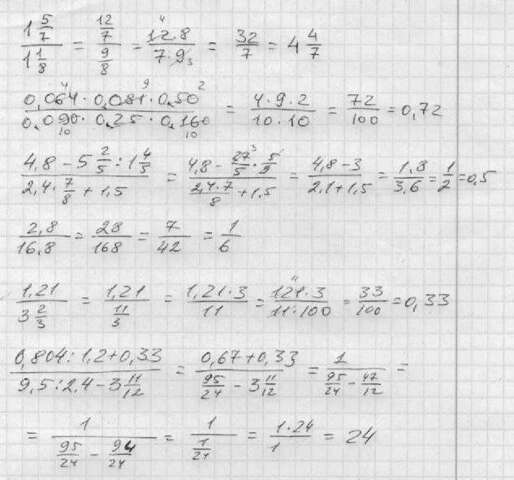 1 5/7 / 1 1/8 = 12/7 / 9/8 = 12·8 / 7·9 = 32/7 = 4 4/7
0,064·0,081·0,50 / 0,090·0,25·0,160 = 4·9·2 / 10·10 = 72/100 = 0,72
4,8 - 5 2/5 : 1 4/5 / 2,4·7/8 + 1,5 = 4,8 - 27/5·5/9 / 2,4·7/8 + 1,5 = 4,8-3 / 2,1+1,5 = 1,8/3,6 = 1/2 = 0,5
2,8/16,8 = 28/168 = 7/42 = 1/6
1,21 / 3 2/3 = 1,21 / 11/3 = 1,21·3 / 11 = 121·3 / 11·100 = 33/100 = 0,33
0,804:1,2+0,33 / 9,5:2,4-3 11/12 = 0,67+0,33 / 95/24 - 3 11/12 = 1 / 95/24 - 47/12 =
= 1 / 95/24 - 94/24 = 1 / 1/24 = 1·24 / 1 = 24